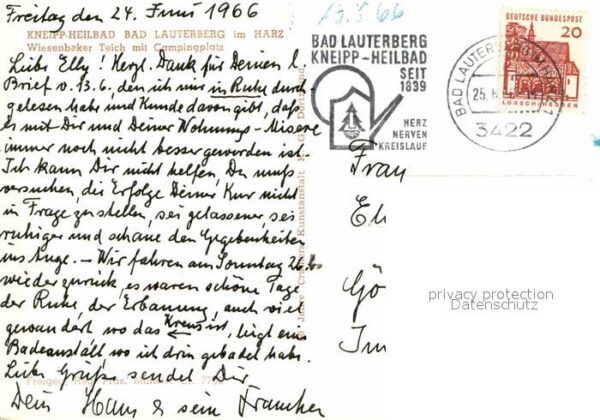 Freitag den 24. Juni 1966
13.6.66
KNEIPP-HEILBAD BAD LAUTERBERG im HARZ
Wiesenbeker Teich mit Campingplatz
Liebe Elly! Herzl. Dank für Deinen l.
Brief v. 13.6. den ich nur in Ruhe durch-
gelesen habe und Kunde davon gibt, daß
es mit Dir und Deiner Wohnungs-Misere
immer noch nicht besser geworden ist.
Ich kann Dir nicht helfen, Du mußt
versuchen, die Erfolge Deiner Kur nicht
in Frage zu stellen, sei gelassener, sei
ruhiger und schaue den Gegebenheiten
ins Auge. - Wir fahren am Sonntag 26.6.
wieder zurück, es waren schöne Tage
der Ruhe, der Erbauung, auch viel
gewandert, wo das Kreuz ist, liegt eine
Badeanstalt wo ich drin gebadet habe.
Liebe Grüße sendet Dir
Dein Hans & sein Frauchen
Jahre Cramers Kunstanstalt KG Dortmund
BAD LAUTERBERG
KNEIPP-HEILBAD
SEIT
1839
HERZ
NERVEN
KREISLAUF
BAD LAUTERBERG
25.6
3422
DEUTSCHE BUNDESPOST
20
LORSCH/HESSEN
Frau
El
Gö
Im
privacy protection
Datenschutz